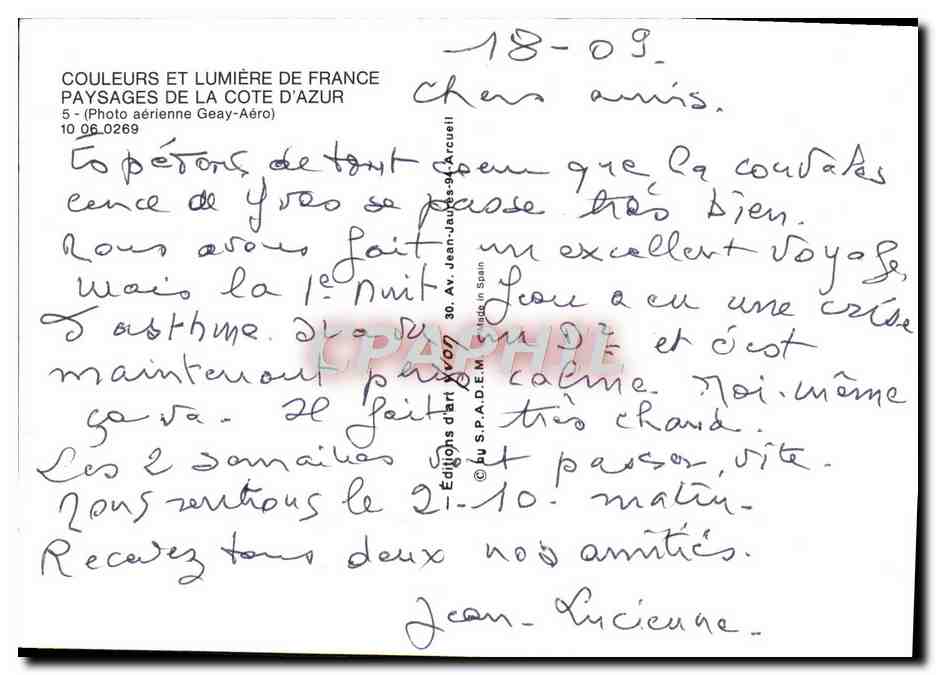 18-09.
COULEURS ET LUMIÈRE DE FRANCE
PAYSAGES DE LA COTE D'AZUR
5 - (Photo aérienne Geay-Aéro)
10 06 0269
Chers amis.
Espérons de tout coeur que la convales
cence de Yves se passe très bien.
Nous avons fait un excellent voyage,
mais la 1e nuit Jean a eu une crise
d'asthme. Il a vu un Dr et c'est
maintenant plus calme. Moi-même
ça va. Il fait très chaud.
Les 2 semaines vont passer vite.
Nous rentrons le 21-10- matin.
Recevez tous deux nos amitiés.
Jean - Lucienne -
Editions d'art Yvon 30, Av. Jean-Jaurès-94-Arcueil
© by S.P.A.D.E.M. Made in Spain
CPAPHIL